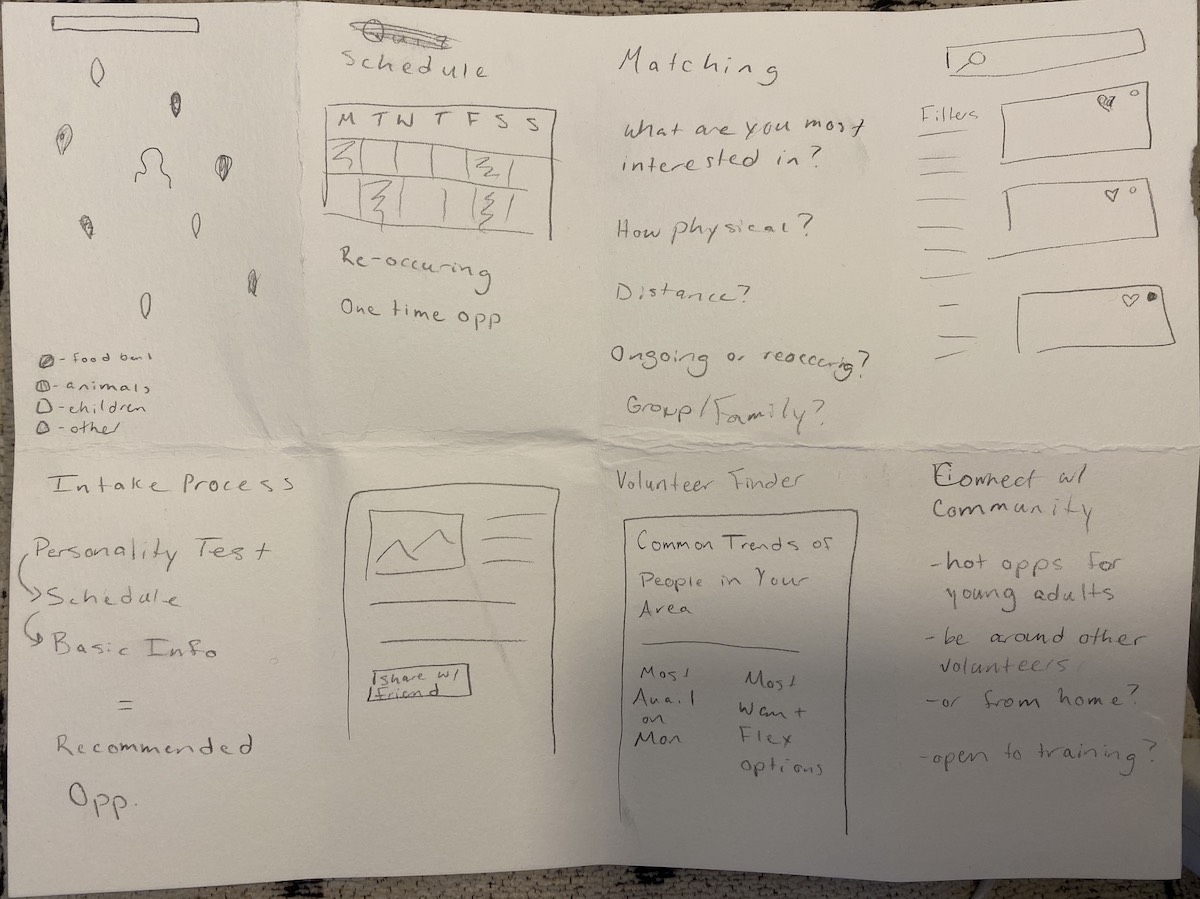 - food bank
- animals
- children
- other
Schedule
M T W T F S S
Re-occuring
One time opp
Matching
What are you most
interested in?
How physical?
Distance?
Ongoing or reoccuring?
Group/Family?
Filters
Intake Process
Personality Test
Schedule
Basic Info
=
Recommended
Opp.
Share w/
Friend
Volunteer Finder
Common Trends of
People in Your
Area
Most
Avail
on
Mon
Most
Want
Flex
options
Connect w/
Community
- hot opps for
young adults
- be around other
volunteers
- or from home?
- open to training?